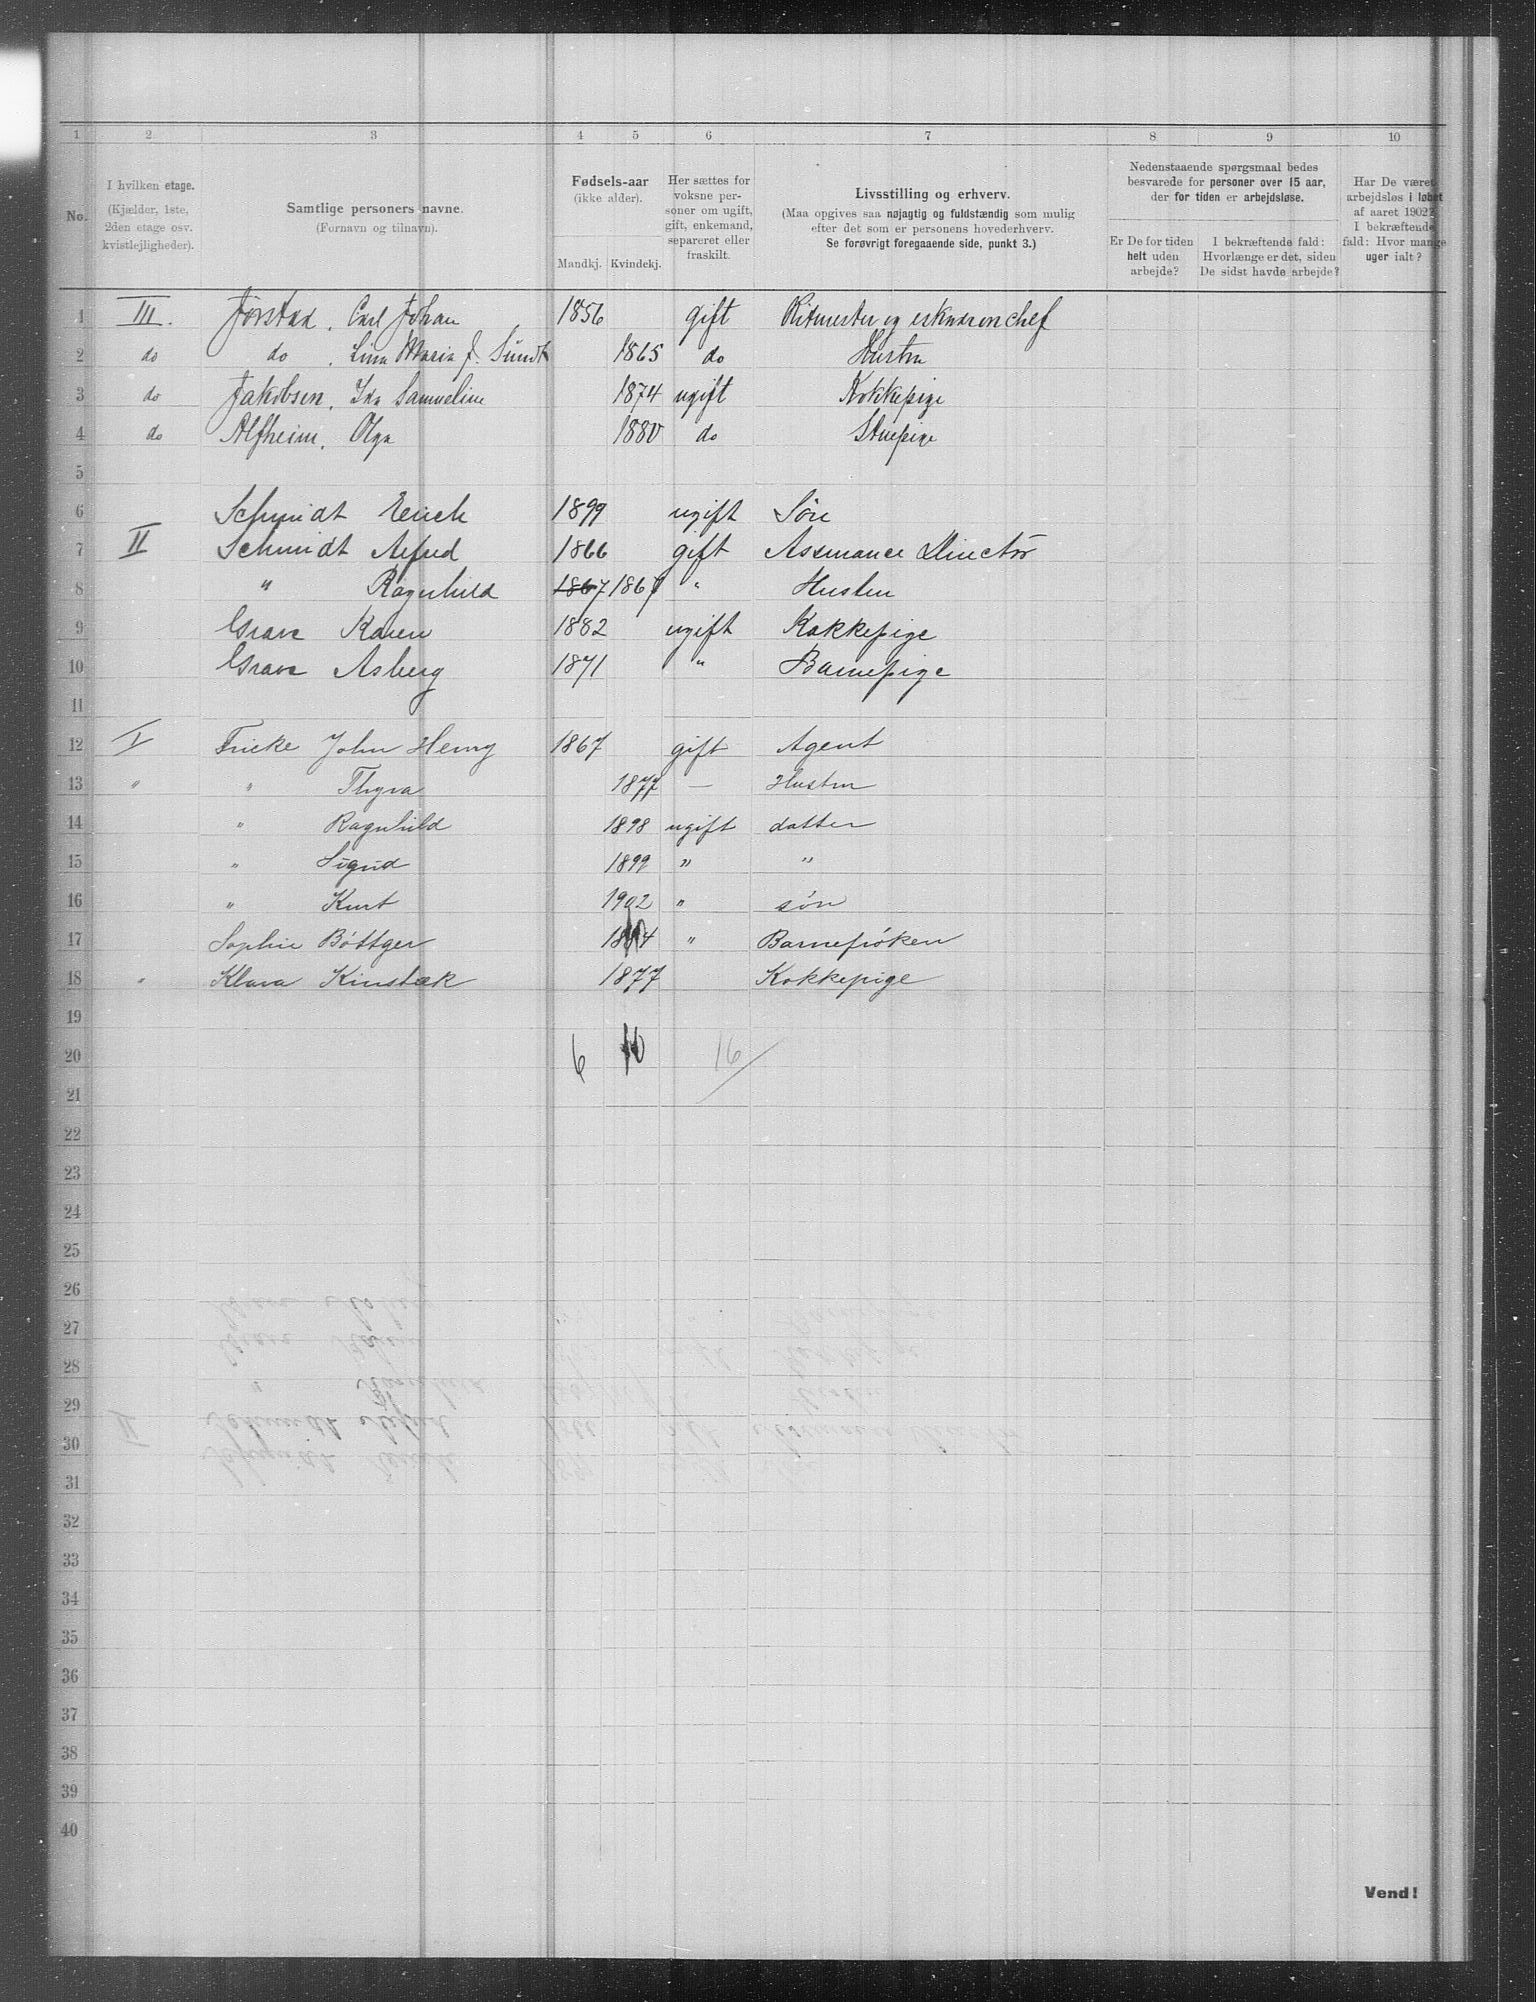 1 2 3 4 5 6 7 8 9 10
No.
I hvilken etage.
(Kjælder, 1ste,
2den etage osv.
kvistlejligheder).
Samtlige personers navne.
(Fornavn og tilnavn).
Fødsels-aar
(ikke alder).
Mandkj. Kvindekj.
Her sættes for
voksne per-
soner om ugift,
gift, enkemand,
separeret eller
fraskilt.
Livsstilling og erhverv.
(Maa opgives saa nøjagtig og fuldstændig som mulig
efter det som er personens hovederhverv.
Se forøvrigt foregaaende side, punkt 3.)
Nedenstaaende spørgsmaal bedes
besvarede for personer over 15 aar,
der for tiden er arbejdsløse.
Er De for tiden
helt uden
arbejde?
I bekræftende fald:
Hvorlænge er det, siden
De sidst havde arbejde?
Har De været
arbejdsløs i løbet
af aaret 1902?
I bekræftende
fald: Hvor mange
uger ialt?
1 III. Jørstad, Carl Johan 1856 gift Ritmester og eskadronchef
2 do do, Lina Maria J. Sundt 1865 do Hustru
3 do Jakobsen, Ida Samueline 1874 ugift Kokkepige
4 do Alfheim, Olga 1880 do Stuepige
5
6 Schmidt Erich 1899 ugift Søn
7 II Schmidt Alfred 1866 gift Assurance Director
8 " Ragnhild 1867 1867 " Hustru
9 Grave Karen 1882 ugift Kokkepige
10 Grave Asberg 1871 " Barnepige
11
12 I Fricke John Henry 1867 gift Agent
13 " " Thyra 1877 — Hustru
14 " Ragnhild 1898 ugift datter
15 " Sigrid 1899 " "
16 " Kurt 1902 " søn
17 Sophie Böttger 1884 " Barnefrøken
18 " Klara Kinstæk 1877 Kokkepige
19
20 6 10 16
21
22
23
24
25
26
27
28
29
30
31
32
33
34
35
36
37
38
39
40
Vend!